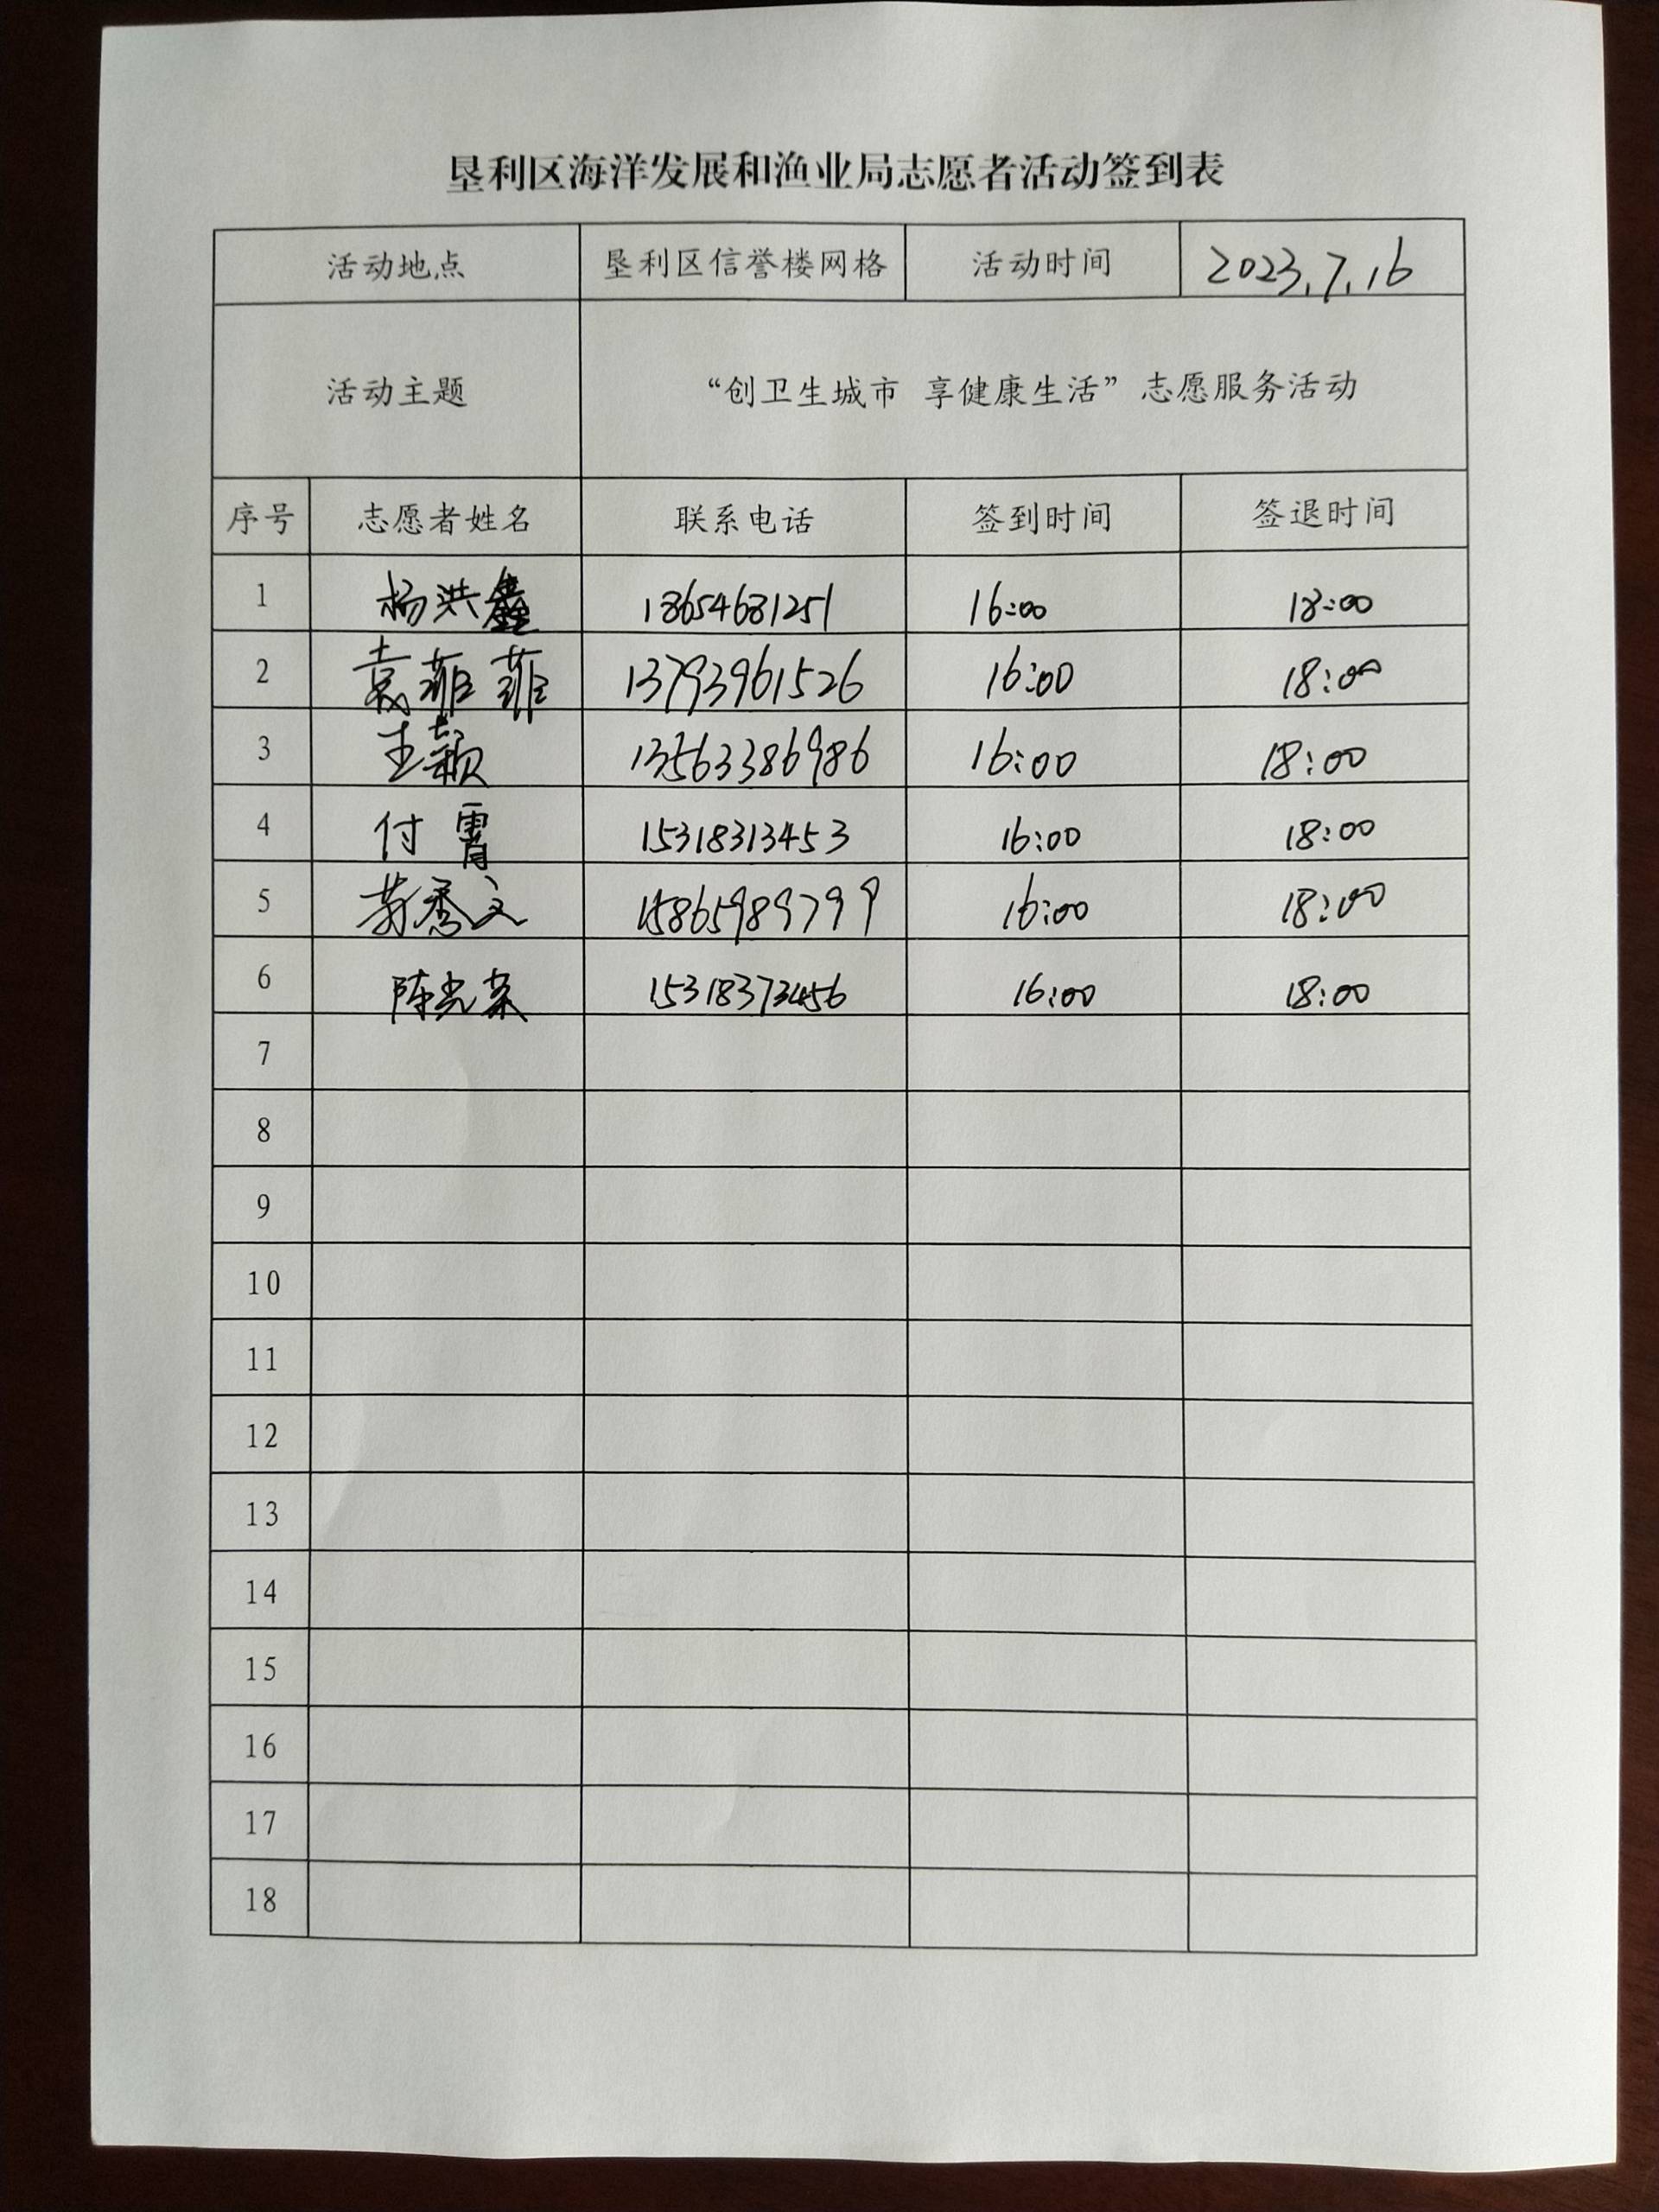 垦利区海洋发展和渔业局志愿者活动签到表
活动地点 垦利区信誉楼网格 活动时间 2023.7.16
活动主题 “创卫生城市 享健康生活”志愿服务活动
序号 志愿者姓名 联系电话 签到时间 签退时间
1 杨洪鑫 18654681251 16:00 18:00
2 袁菲菲 13793961526 16:00 18:00
3 王颖 13563386986 16:00 18:00
4 付霄 15318313453 16:00 18:00
5 秀文 15865989799 16:00 18:00
6 陈光荣 15318373456 16:00 18:00
7
8
9
10
11
12
13
14
15
16
17
18